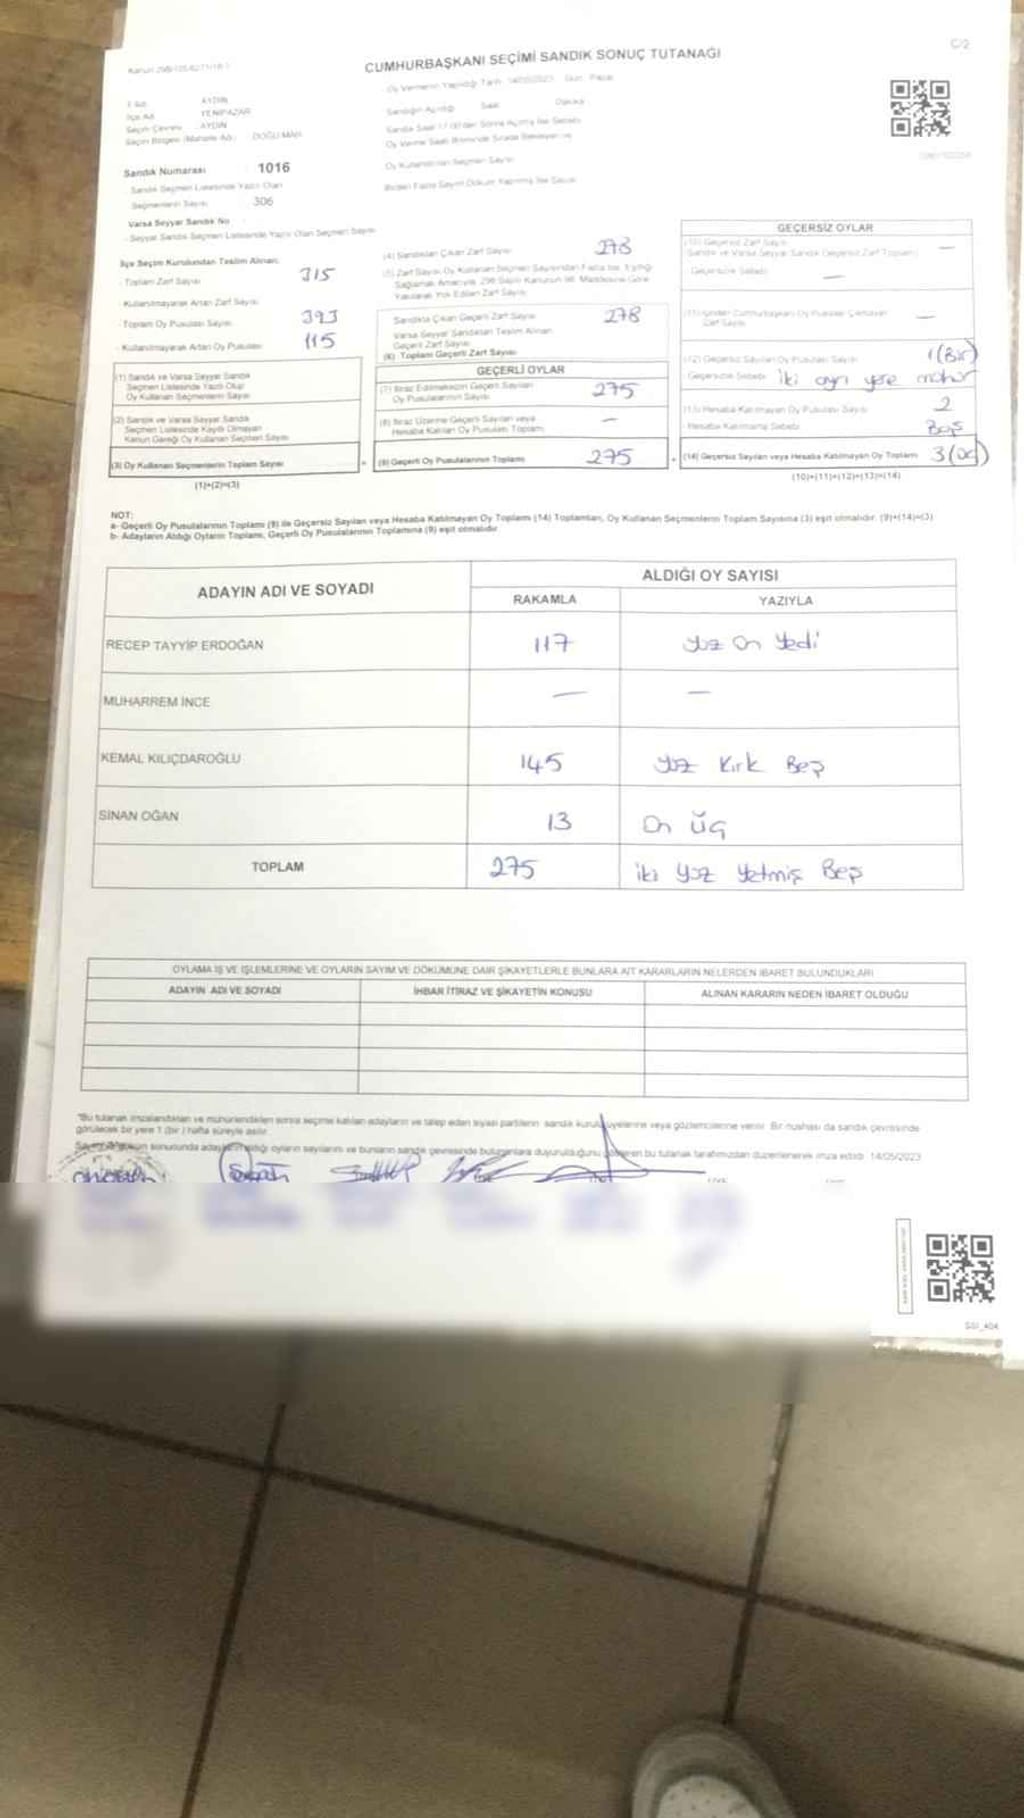 C/2
CUMHURBAŞKANI SEÇİMİ SANDIK SONUÇ TUTANAĞI
Oy Vermenin Yapıldığı Tarih 14/05/2023 Gün: Pazar
İl Adı AYDIN
İlçe Adı YENİPAZAR
Seçim Çevresi : AYDIN
Seçim Bölgesi (Mahalle Adı) : DOĞU MAH
Sandığın Açıldığı Saat Dakika
Oy Kullandırılan Seçmen Sayısı
Sandık Numarası 1016
Sandık Seçmen Listesinde Yazılı Olan
Seçmenlerin Sayısı 306
Varsa Seyyar Sandık No
- Seyyar Sandık Seçmen Listesinde Yazılı Olan Seçmen Sayısı
İlçe Seçim Kurulundan Teslim Alınan:
- Toplam Zarf Sayısı 315
- Kullanılmayarak Artan Zarf Sayısı
- Toplam Oy Pusulası Sayısı 393
- Kullanılmayarak Artan Oy Pusulası 115
(1) Sandık ve Varsa Seyyar Sandık
Seçmen Listesinde Yazılı Olup
Oy Kullanan Seçmenlerin Sayısı
(2) Sandık ve Varsa Seyyar Sandık
Seçmen Listesinde Kayıtlı Olmayan
Kanun Gereği Oy Kullanan Seçmen Sayısı
(3) Oy Kullanan Seçmenlerin Toplam Sayısı
(1)+(2)=(3)
(4) Sandıktan Çıkan Zarf Sayısı 278
(5) Zarf Sayısı Oy Kullanan Seçmen Sayısından Fazla ise, Eşitliği
Sağlamak Amacıyla 298 Sayılı Kanunun 98. Maddesine Göre
Yakılarak Yok Edilen Zarf Sayısı
Sandıkta Çıkan Geçerli Zarf Sayısı 278
Varsa Seyyar Sandıktan Teslim Alınan
Geçerli Zarf Sayısı
(6) Toplam Geçerli Zarf Sayısı
GEÇERLİ OYLAR
(7) İtiraz Edilmeksizin Geçerli Sayılan
Oy Pusulalarının Sayısı 275
(8) İtiraz Üzerine Geçerli Sayılan veya
Hesaba Katılan Oy Pusulası Toplamı —
(9) Geçerli Oy Pusulalarının Toplamı 275
GEÇERSİZ OYLAR
(10) Geçersiz Zarf Sayısı
Sandık ve Varsa Seyyar Sandık Geçersiz Zarf Toplamı) —
Geçersizlik Sebebi —
Zarf Sayısı —
(12) Geçersiz Sayılan Oy Pusulası Sayısı 1 (Bir)
Geçersizlik Sebebi iki ayrı yere mühür
(13) Hesaba Katılmayan Oy Pusulası Sayısı 2
Hesaba Katılmama Sebebi Boş
(14) Geçersiz Sayılan veya Hesaba Katılmayan Oy Toplamı 3 (üç)
(10)+(11)+(12)+(13)=(14)
NOT:
a- Geçerli Oy Pusulalarının Toplamı (9) ile Geçersiz Sayılan veya Hesaba Katılmayan Oy Toplamı (14) Toplamları, Oy Kullanan Seçmenlerin Toplam Sayısına (3) eşit olmalıdır. (9)+(14)=(3)
b- Adayların Aldığı Oyların Toplamı, Geçerli Oy Pusulalarının Toplamına (9) eşit olmalıdır.
ADAYIN ADI VE SOYADI ALDIĞI OY SAYISI
RAKAMLA YAZIYLA
RECEP TAYYİP ERDOĞAN 117 Yüz On Yedi
MUHARREM İNCE — —
KEMAL KILIÇDAROĞLU 145 Yüz Kırk Beş
SİNAN OĞAN 13 On Üç
TOPLAM 275 iki yüz yetmiş Beş
OYLAMA İŞ VE İŞLEMLERİNE VE OYLARIN SAYIM VE DÖKÜMÜNE DAİR ŞİKAYETLERLE BUNLARA AİT KARARLARIN NELERDEN İBARET BULUNDUKLARI
ADAYIN ADI VE SOYADI İHBAR İTİRAZ VE ŞİKAYETİN KONUSU ALINAN KARARIN NEDEN İBARET OLDUĞU
"Bu tutanak imzalandıktan ve mühürlendikten sonra seçime katılan adayların ve talep eden siyasi partilerin sandık kurulu üyelerine veya gözlemcilerine verilir. Bir nüshası da sandık çevresinde
görülecek bir yere 1 (bir) hafta süreyle asılır.
Sayım ve döküm sonunda adayların aldığı oyların sayılarını ve bunların sandık çevresinde bulunanlara duyurulduğunu gösteren bu tutanak tarafımızdan düzenlenerek imza edildi. 14/05/2023